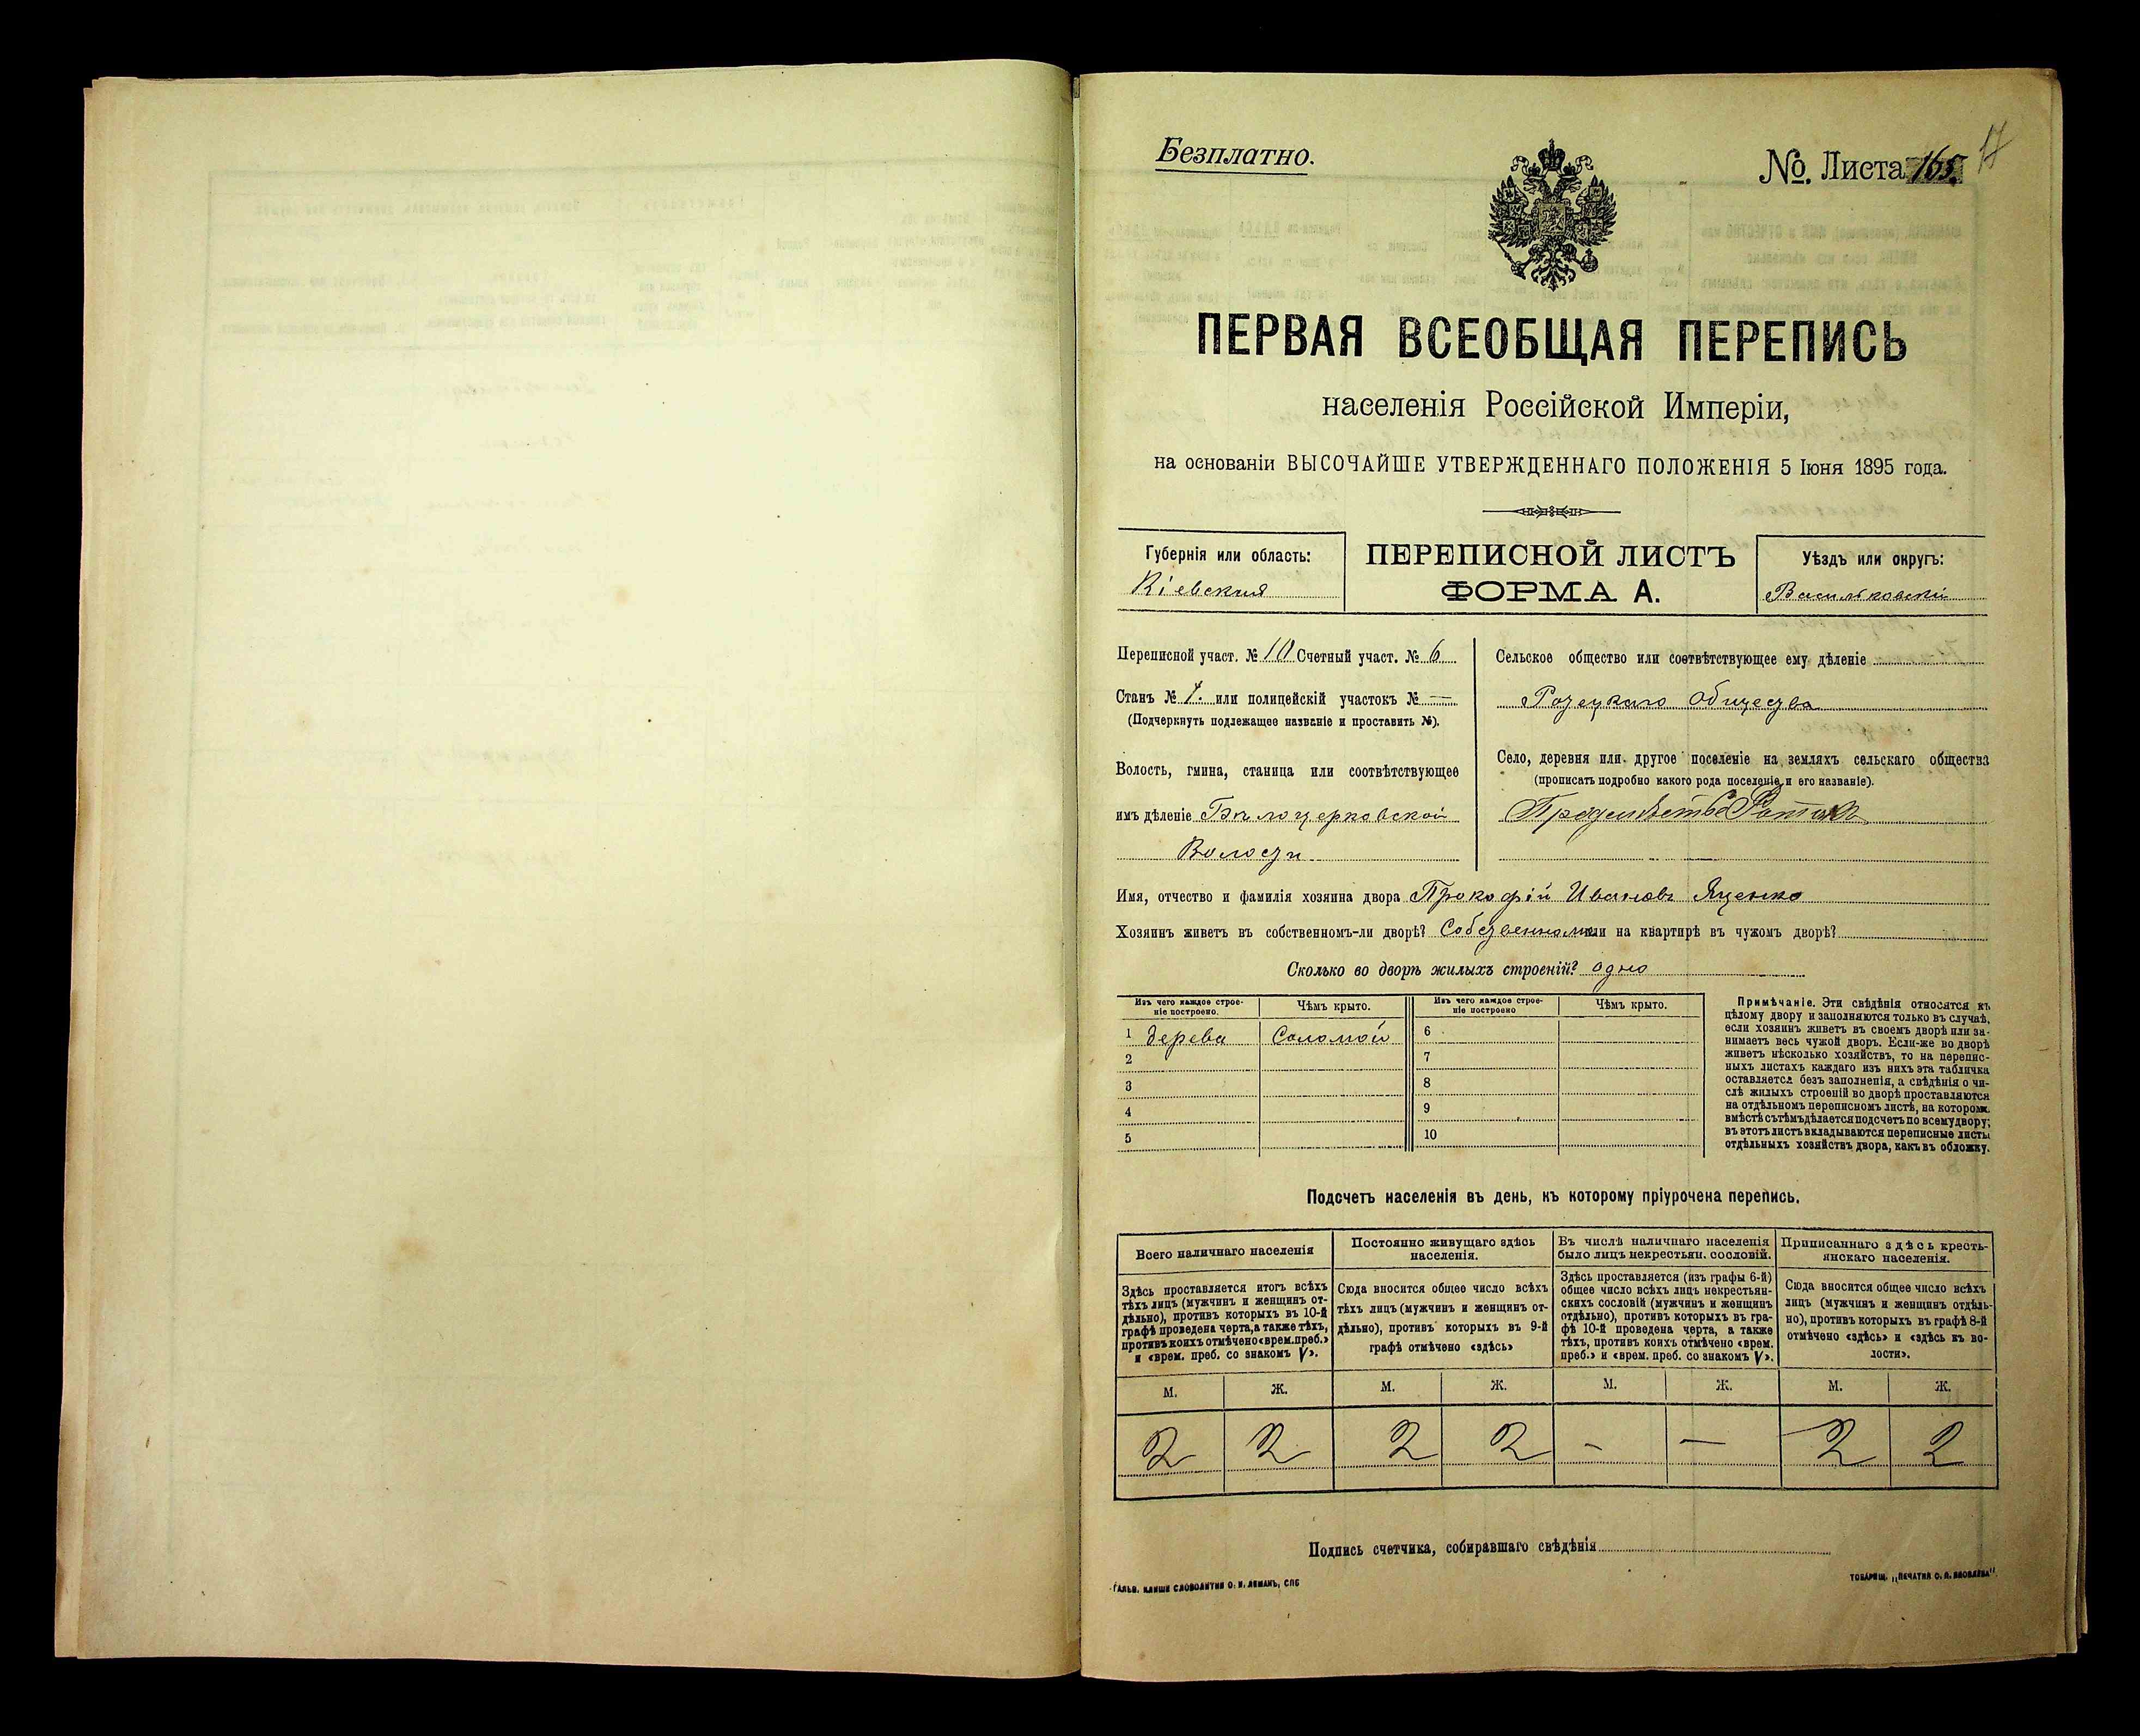 Безплатно.
№. Листа 165.
17
ПЕРВАЯ ВСЕОБЩАЯ ПЕРЕПИСЬ
населенія Россійской Имперіи,
на основаніи ВЫСОЧАЙШЕ УТВЕРЖДЕННАГО ПОЛОЖЕНІЯ 5 Іюня 1895 года.
Губернія или область:
Кіевская
ПЕРЕПИСНОЙ ЛИСТЪ
ФОРМА А.
Уѣздъ или округъ:
Васильковскій
Переписной участ. № 10 Счетный участ. № 6
Станъ № 1. или полицейскій участокъ № —
(Подчеркнуть подлежащее названіе и проставить №).
Волость, гмина, станица или соотвѣтствующее
имъ дѣленіе Бѣлоцерковской
Волости
Сельское общество или соотвѣтствующее ему дѣленіе
общества
Село, деревня или другое поселеніе на земляхъ сельскаго общества
(прописать подробно какого рода поселеніе и его названіе).
Предмѣстье Ротокъ
Имя, отчество и фамилія хозяина двора Прокофій Ивановъ Яценко
Хозяинъ живетъ въ собственномъ-ли дворѣ? Собственномъ или на квартирѣ въ чужомъ дворѣ?
Сколько во дворѣ жилыхъ строеній? одно
Изъ чего каждое строе-
ніе построено.
Чѣмъ крыто.
Изъ чего каждое строе-
ніе построено
Чѣмъ крыто.
1 дерева Соломой 6
2 7
3 8
4 9
5 10
Примѣчаніе. Эти свѣдѣнія относятся къ
цѣлому двору и заполняются только въ случаѣ,
если хозяинъ живетъ въ своемъ дворѣ или за-
нимаетъ весь чужой дворъ. Если-же во дворѣ
живетъ нѣсколько хозяйствъ, то на перепис-
ныхъ листахъ каждаго изъ нихъ эта табличка
оставляется безъ заполненія, а свѣдѣнія о чи-
слѣ жилыхъ строеній во дворѣ проставляются
на отдѣльномъ переписномъ листѣ, на которомъ
вмѣстѣ съ тѣмъ дѣлается подсчетъ по всему двору;
въ этотъ листъ вкладываются переписные листы
отдѣльныхъ хозяйствъ двора, какъ въ обложку.
Подсчетъ населенія въ день, къ которому пріурочена перепись.
Всего наличнаго населенія
Постоянно живущаго здѣсь
населенія.
Въ числѣ наличнаго населенія
было лицъ некрестьян. сословій.
Приписаннаго здѣсь кресть-
янскаго населенія.
Здѣсь проставляется итогъ всѣхъ
тѣхъ лицъ (мужчинъ и женщинъ от-
дѣльно), противъ которыхъ въ 10-й
графѣ проведена черта, а также тѣхъ,
противъ коихъ отмѣчено «врем. преб.»
и «врем. преб. со знакомъ V».
Сюда вносится общее число всѣхъ
тѣхъ лицъ (мужчинъ и женщинъ от-
дѣльно), противъ которыхъ въ 9-й
графѣ отмѣчено «здѣсь»
Здѣсь проставляется (изъ графы 6-й)
общее число всѣхъ лицъ некрестьян-
скихъ сословій (мужчинъ и женщинъ
отдѣльно), противъ которыхъ въ гра-
фѣ 10-й проведена черта, а также
тѣхъ, противъ коихъ отмѣчено «врем.
преб.» и «врем. преб. со знакомъ V».
Сюда вносится общее число всѣхъ
лицъ (мужчинъ и женщинъ отдѣль-
но), противъ которыхъ въ графѣ 8-й
отмѣчено «здѣсь» и «здѣсь въ во-
лости».
М. Ж. М. Ж. М. Ж. М. Ж.
2 2 2 2 — — 2 2
Подпись счетчика, собиравшаго свѣдѣнія
ГАЛЬВ. КЛИШЕ СЛОВОЛИТНИ О. И. ЛЕМАНЪ, СПБ
ТОВАРИЩ. „ПЕЧАТНЯ С. П. ЯКОВЛЕВА“.